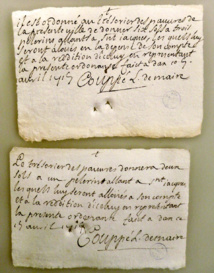 il est ordonné au trésorier des pauvres de
la présente ville de donner six sols a trois
pelerins allants a St jacques, les quels luy
seront alloués en la depense de son compte
et a la reddition dicelluy en reportant
la presente ordonance fait a dax 10
avril
Couppé L demain
Le trésorier des pauvres donnera deux
sols a un pelerin allant a jacques
lesquels luy seront alloués a son compte
et a la reddition dicelluy en reportant
la presente fait a dax ce
15 avril
Couppé L demain